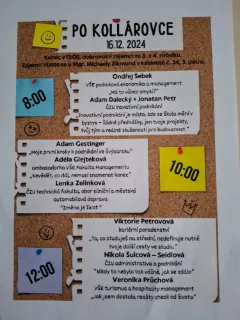 PO KOLLÁROVCE
16.12. 2024
Konec v 13:00, dobrovolní zájemci ze 3. a 4. ročníku.
Zájemci hlaste se u Mgr. Michaely Zikmund v kabinetě č. 34, 3. patro.
8:00
Ondřej Šebek
VŠE podniková ekonomika a management
"Má to vůbec smysl?"
Adam Dalecký + Jonatan Petr
ČZU inovativní podnikání
"Inovativní podnikání je výzva, kde se škola mění v
byznys – žádné přednášky, jen tvoje projekty,
tvůj tým a reálné zkušenosti pro budoucnost."
Adam Gestinger
„Moje první kroky k podnikání ve Švýcarsku"
Adéla Glejteková
ambasadorka VŠE Fakulta Managementu
"Nevědět, co dál, nemusí znamenat konec"
Lenka Zelinková
ČZU technická fakulta, obor silniční a městská
automobilová doprava
"Změna je život"
10:00
12:00
Viktorie Petrovová
kariérní poradenství
"To, co studuješ na střední, nedefinuje nutně
tvoje další cesty ve studiu."
Nikola Šulcová – Seidlová
ČZU administrativa a podnikání
"Nikdy to nebylo tak vážné, jak se zdálo"
Veronika Průchová
VŠE turismus a hospitality management
„Jak jsem dostala reality check od života"